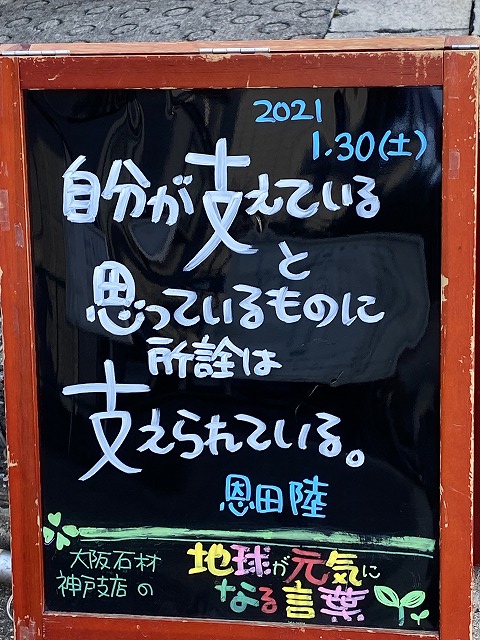 2021
1.30(土)
自分が支えている
と
思っているものに
所詮は
支えられている。
恩田陸
大阪石材
神戸支店の
地球が元気に
なる言葉